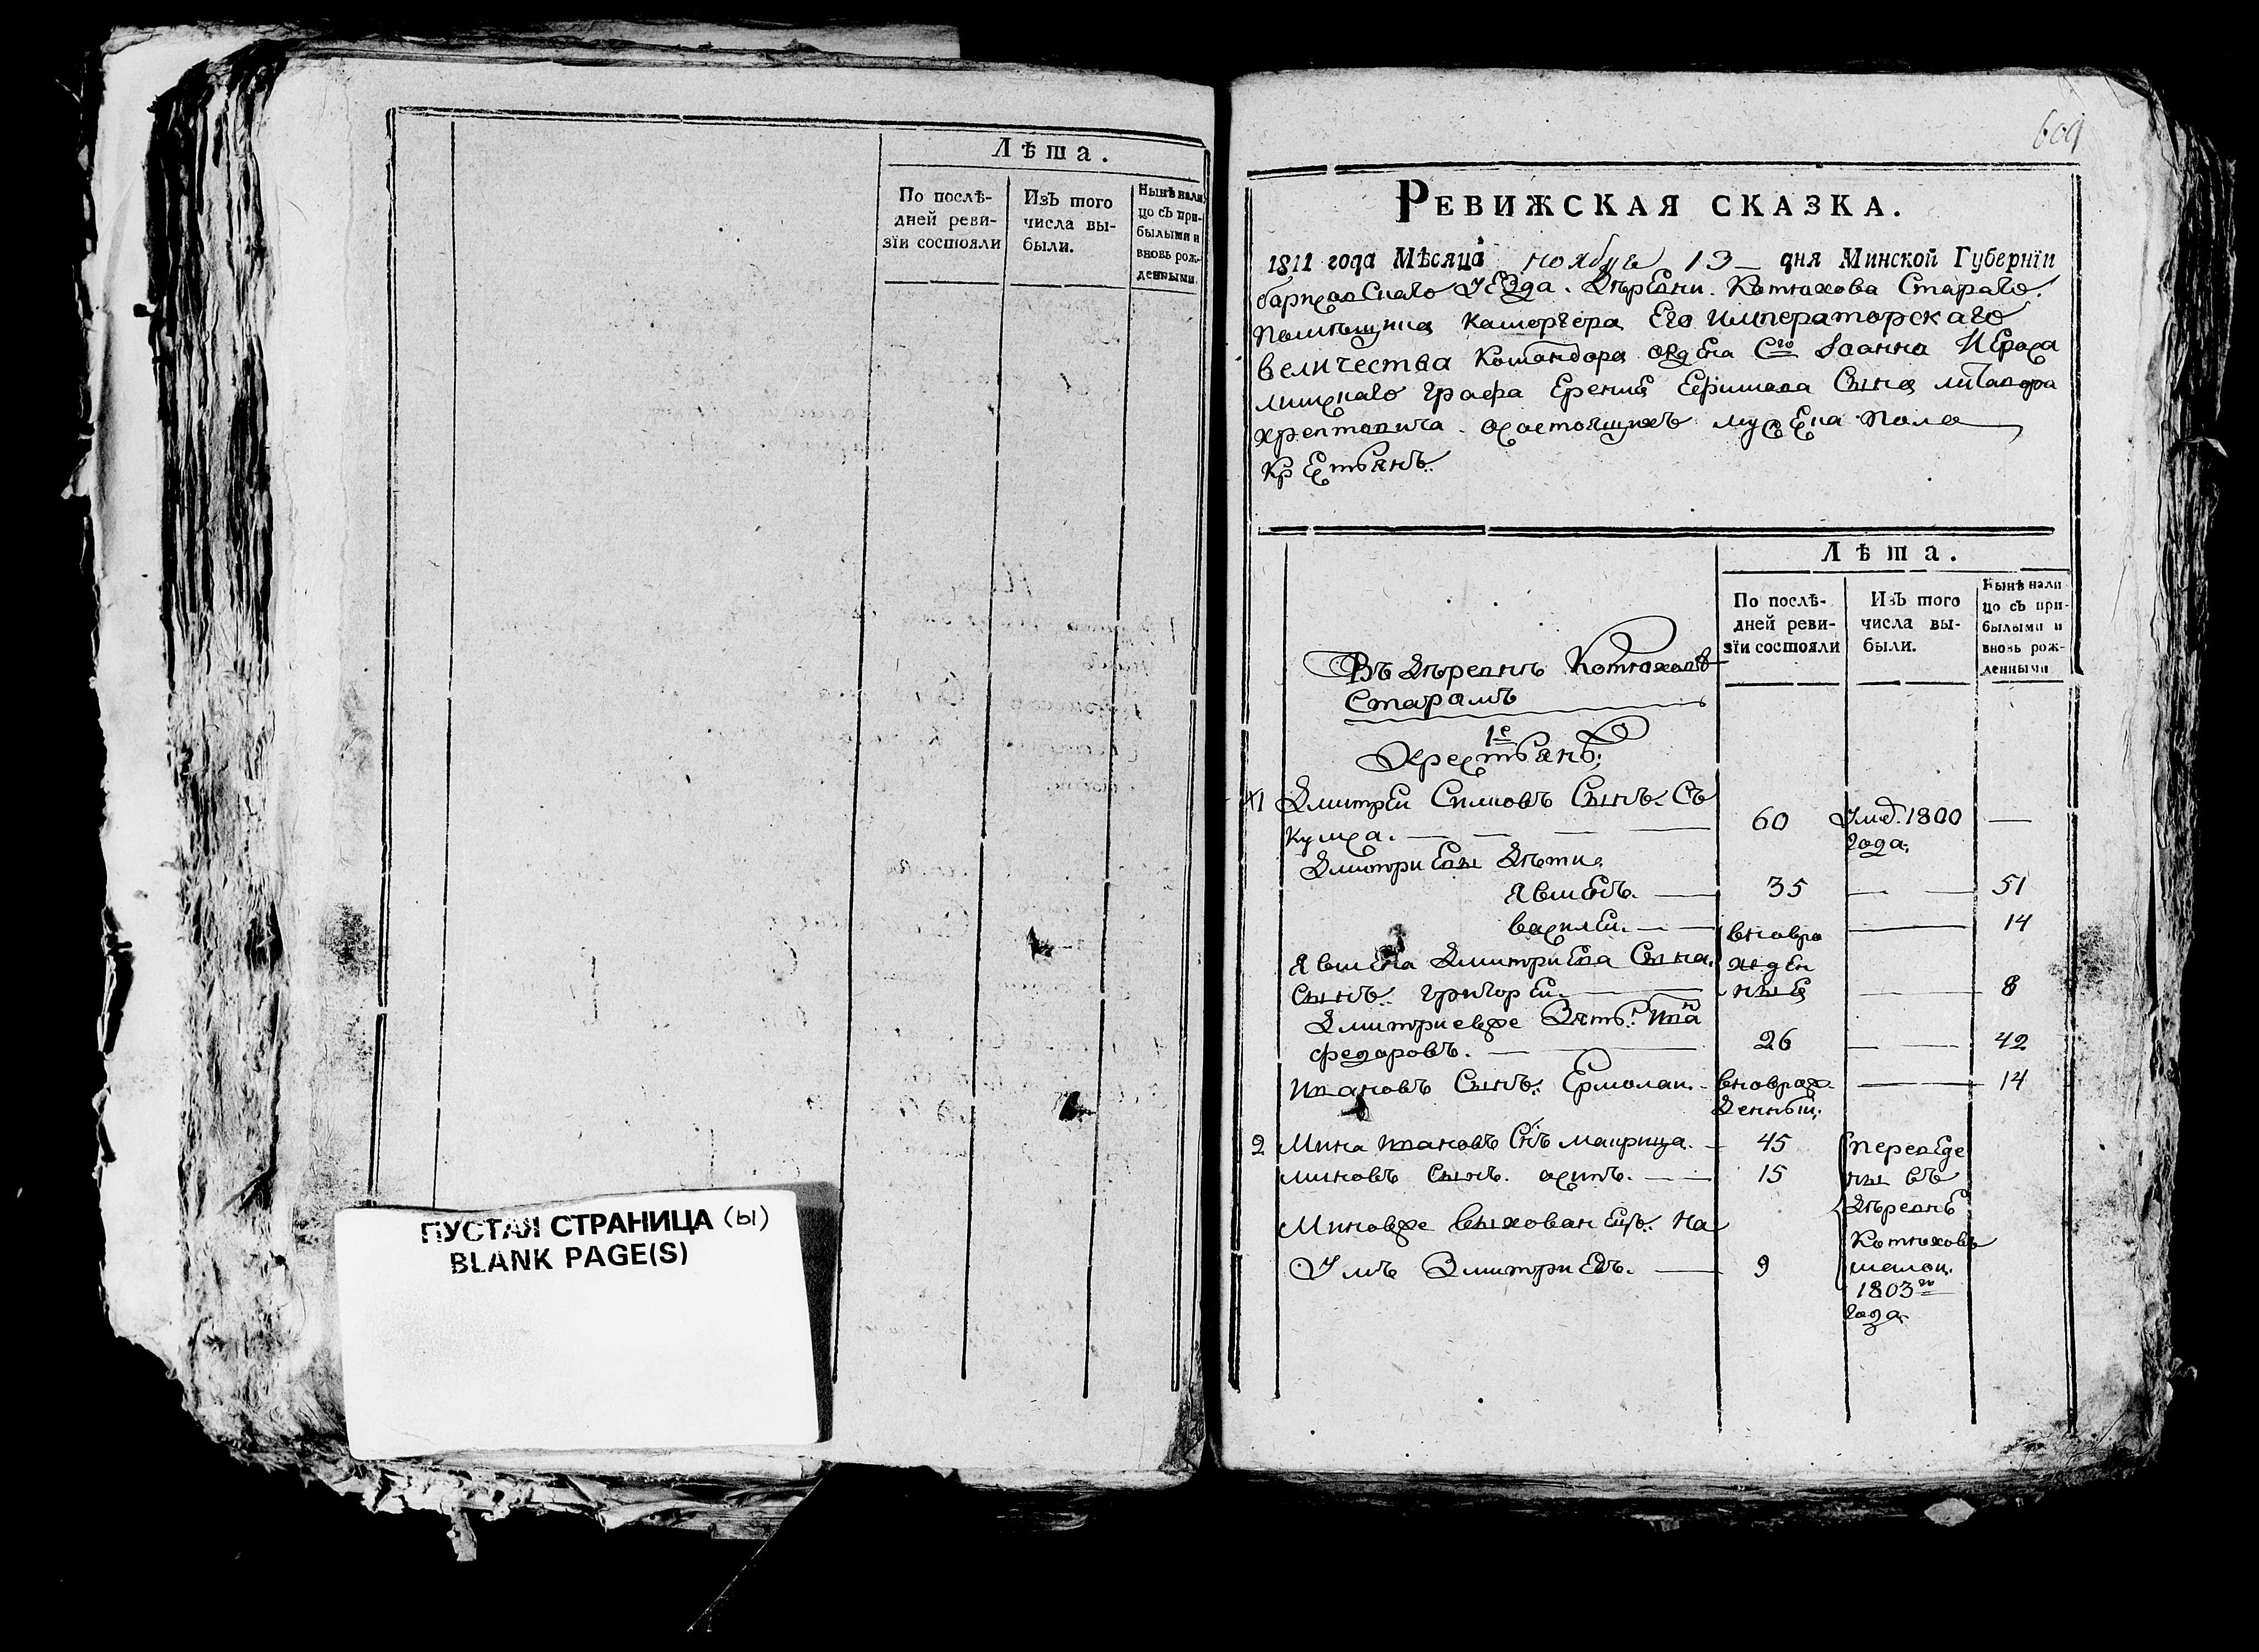 Лѣта.
По послѣ-
дней реви-
зїи состояли
Изъ того
числа вы-
были.
Нынѣ нали
цо съ при-
былыми и
вновь рож-
денными.
ПУСТАЯ СТРАНИЦА (Ы)
BLANK PAGE(S)
609
РЕВИЖСКАЯ СКАЗКА.
1811 года Мѣсяца ноября 13 дня Минской Губернїи
борисовскаго уезда. дѣревни. Котюхова Стараго.
помѣщика камергера Его императорскаго
величества командора ордена Сго Іоанна Иеросо
лимскаго графа Ерениа Ефимова Сына
хрептовича. о состоящихъ мужеска пола
крестьянъ.
Лѣта.
По послѣ-
дней реви-
зїи состояли
Изъ того
числа вы-
были.
Нынѣ нали
цо съ при-
былыми и
вновь рож-
денными
Въ дѣревнѣ Котюховѣ
Старомъ
1е
Крестьянъ;
1 Дмитрей Симовъ Сынъ.
60
Умѣ. 1800
года.
Дмитриевы дѣти
Явменъ.
35
51
василей.
вновро
14
Явмена Дмитриева Сына.
жден
Сынъ. григорей
ные
8
Дмитриевже Зять.
федоровъ.
26
42
Ивановъ Сынъ: Ермолай.
вноврож
14
денный.
2 Мина Ивановъ Снъ маирица.
45
переведе
миновъ Сынъ. осипъ.
15
ны въ
дѣревнѣ
Миновже выхованецъ. На
Котюховъ
умъ Дмитриевъ.
9
малой.
1803го
года